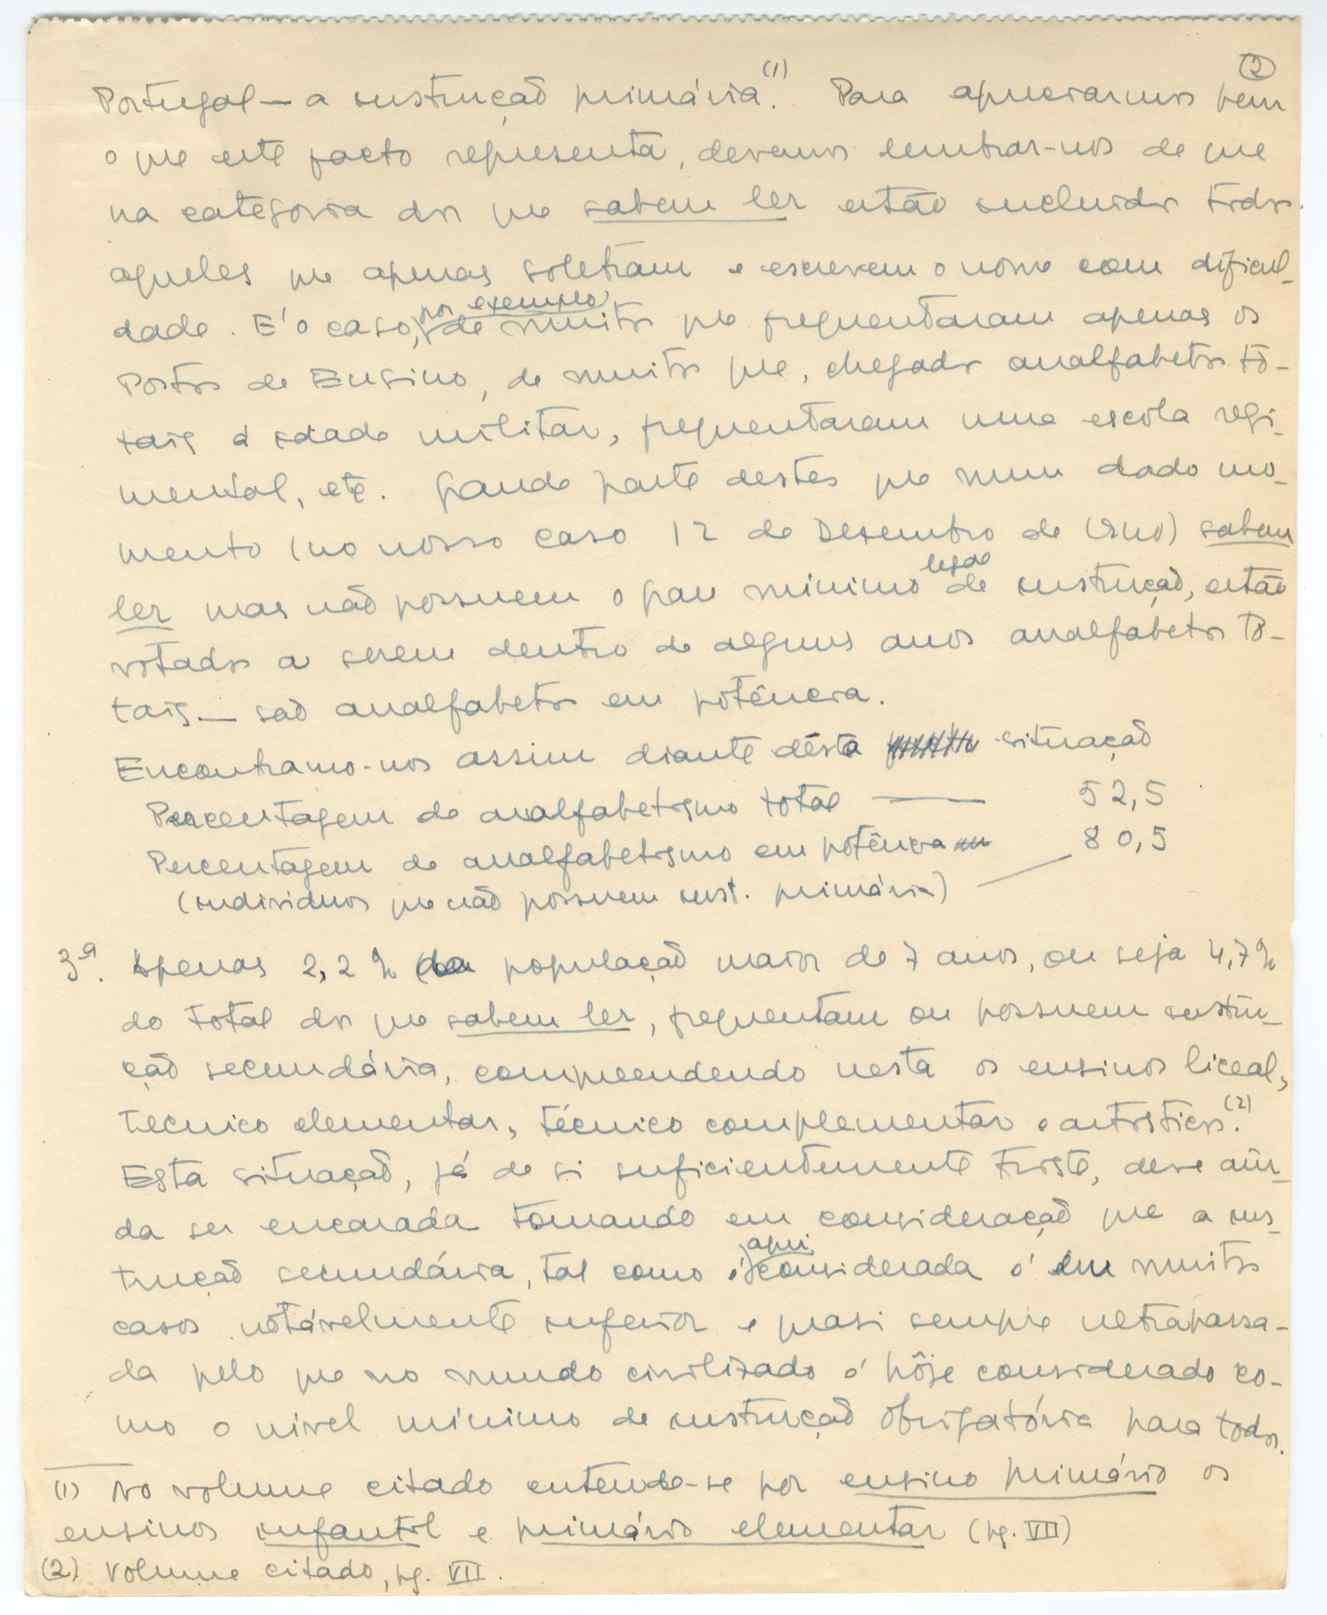 (2)
Portugal — a instrução primária.(1) Para apreciarmos bem
o que este facto representa, devemos lembrar-nos de que
na categoria dos que sabem ler estão incluidos todos
aqueles que apenas soletram e escrevem o nome com dificul-
dade. E' o caso, por exemplo, de muitos que frequentaram apenas os
Postos de Ensino, de muitos que, chegados analfabetos to-
tais á idade militar, frequentaram uma escola regi-
mental, etc. Grande parte destes que num dado mo-
mento (no nosso caso 12 de Dezembro de 1940) sabem
ler mas não possuem o grau minimo legal de instrução, estão
votados a serem dentro de alguns anos analfabetos to-
tais — são analfabetos em potência.
Encontramo-nos assim diante désta situação
Percentagem de analfabetismo total — 52,5
Percentagem de analfabetismo em potência
(individuos que não possuem inst. primária) — 80,5
3ª. Apenas 2,2% da população maior de 7 anos, ou seja 4,7%
do total dos que sabem ler, frequentam ou possuem instru-
ção secundária, compreendendo nesta os ensinos liceal,
tecnico elementar, técnico complementar e artistico.(2)
Esta situação, já de si suficientemente triste, deve ain-
da ser encarada tomando em consideração que a ins-
trução secundária, tal como é aqui considerada é em muitos
casos notávelmente inferior e quasi sempre ultrapassa-
da pelo que no mundo civilizado é hôje considerado co-
mo o nivel minimo de instrução obrigatória para todos.
(1) No volume citado entende-se por ensino primário os
ensinos infantil e primário elementar (pg. VII)
(2) Volume citado, pg. VII.